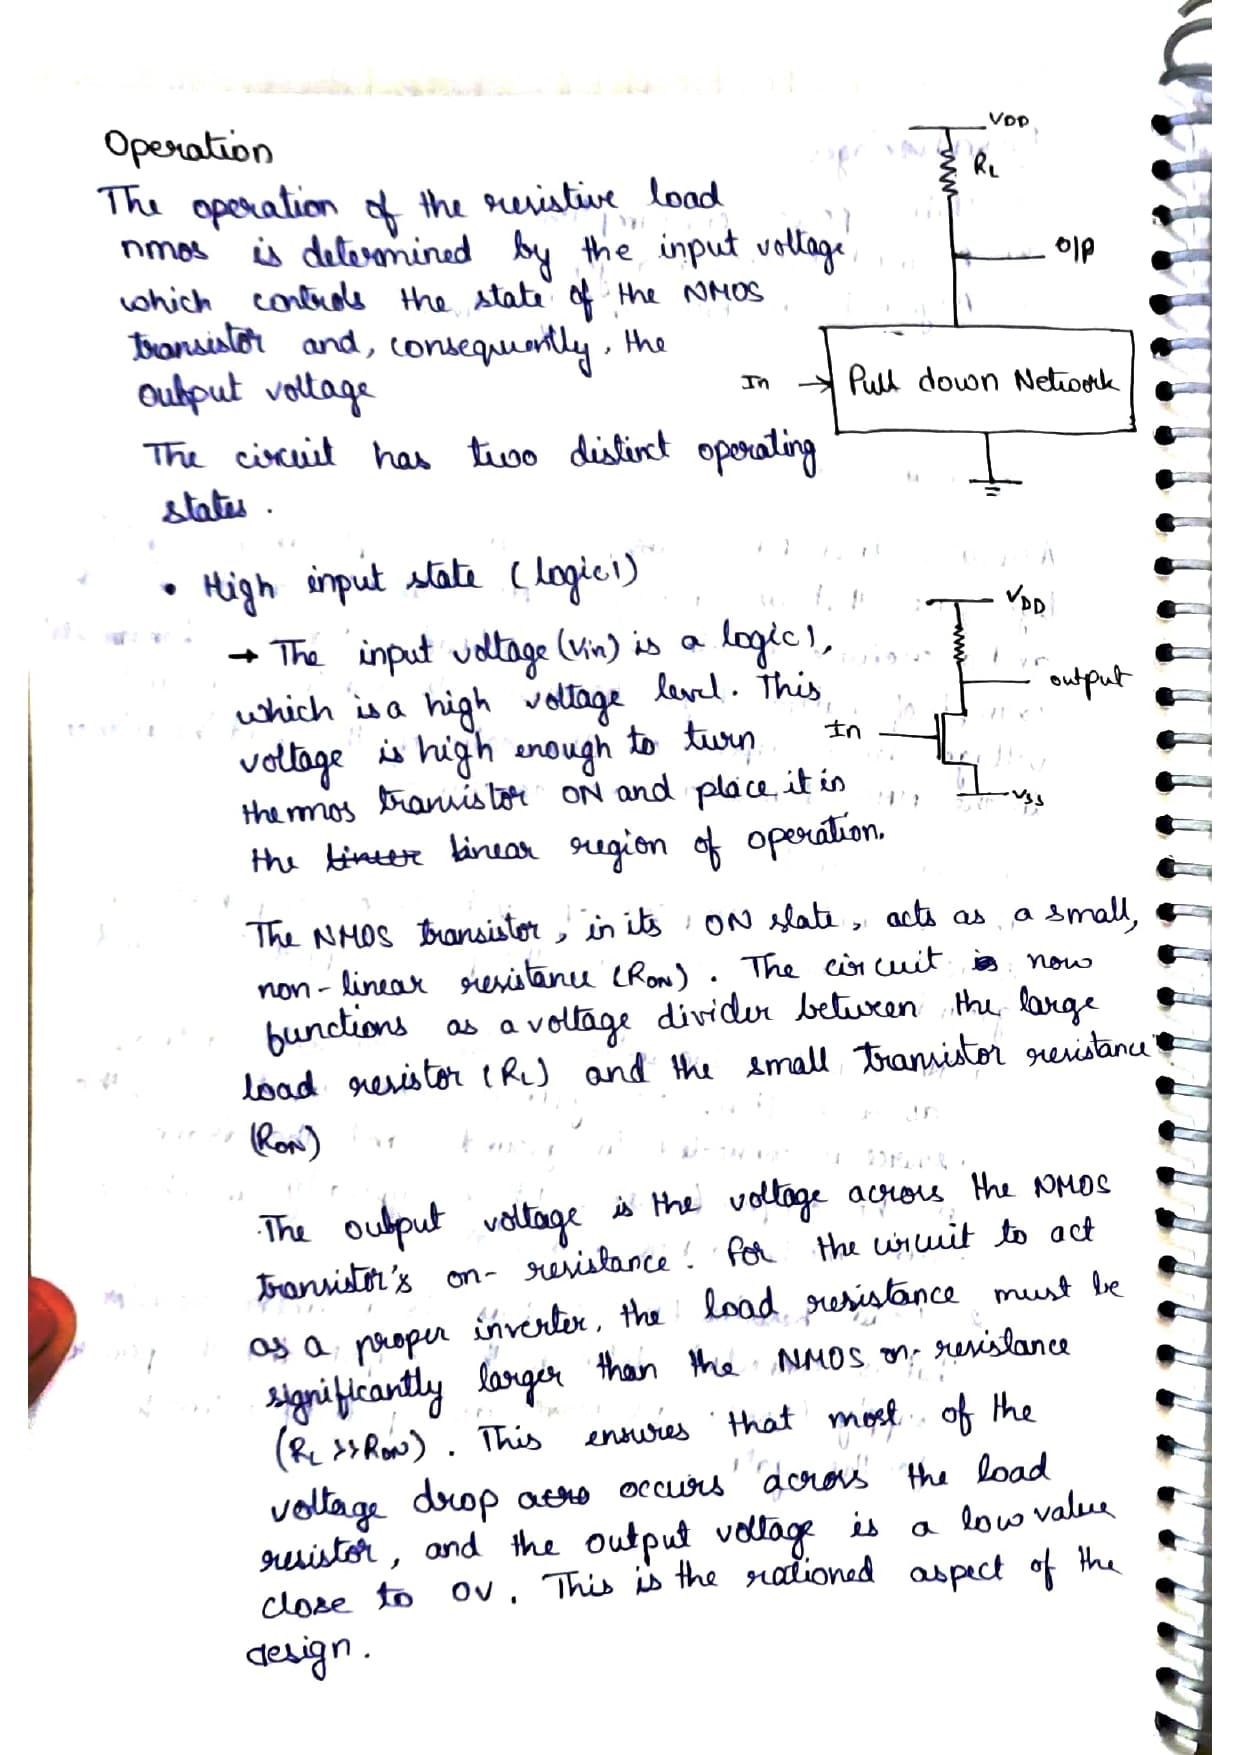 Operation
The operation of the resistive load
nmos is determined by the input voltage
which controls the state of the NMOS
transistor and, consequently, the
output voltage
The circuit has two distinct operating
states.
VDD
RL
O/P
In
Pull down Network
• High input state (logic 1)
→ The input voltage (Vin) is a logic 1,
which is a high voltage level. This
voltage is high enough to turn
the nmos transistor ON and place it in
the linear region of operation.
VDD
output
In
VSS
The NMOS transistor, in its ON state, acts as a small,
non-linear resistance (RON). The circuit is now
functions as a voltage divider between the large
load resistor (RL) and the small transistor resistance
(RON)
The output voltage is the voltage across the NMOS
transistor's on-resistance. For the circuit to act
as a proper inverter, the load resistance must be
significantly larger than the NMOS on-resistance
(RL >> RON). This ensures that most of the
voltage drop occurs across the load
resistor, and the output voltage is a low value
close to 0V. This is the rationed aspect of the
design.